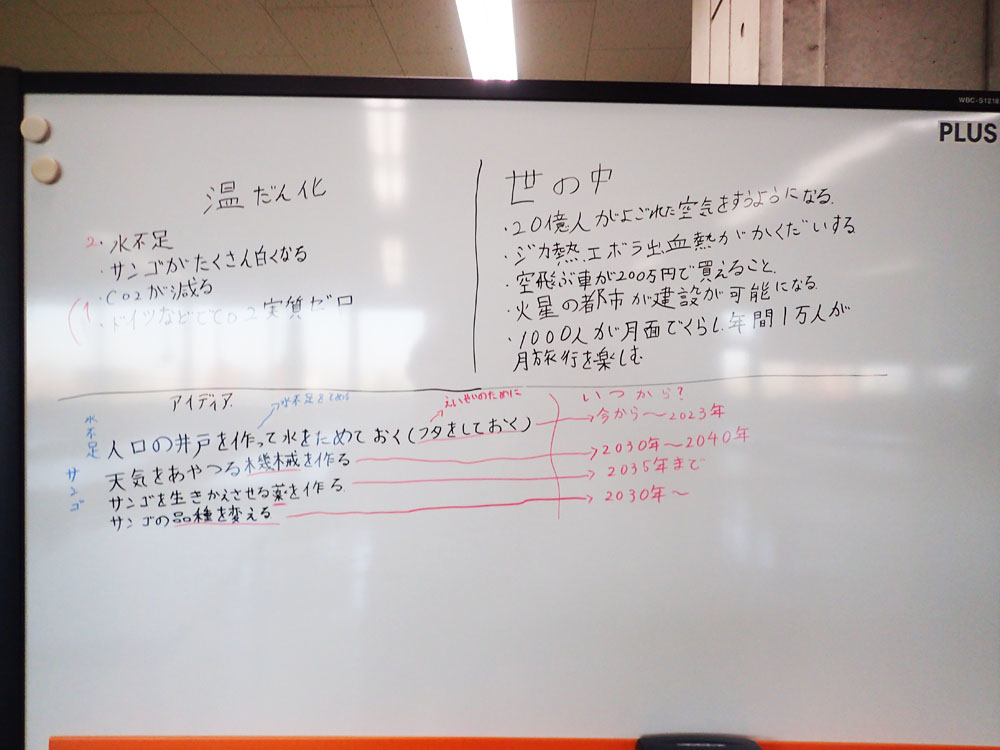 WBC-G1218
PLUS
温だん化
2.・水不足
・サンゴがたくさん白くなる
・CO2が減る
1
・ドイツなどでCO2実質ゼロ
世の中
・20億人がよごれた空気をすうようになる.
・ジカ熱.エボラ出血熱がかくだいする
・空飛ぶ車が200万円で買えること.
・火星の都市が建設が可能になる.
・1000人が月面でくらし.年間1万人が
月旅行を楽しむ
アイディア.
水不足をためにえいせいのために
いつから?
水不足
人口の井戸を作って水をためておく(フタをしておく)→今から～2023年
天気をあやつる機械を作る→2030年～2040年
サンゴ
サンゴを生きかえさせる薬を作る.→2035年まで
サンゴの品種を変える→2030年～